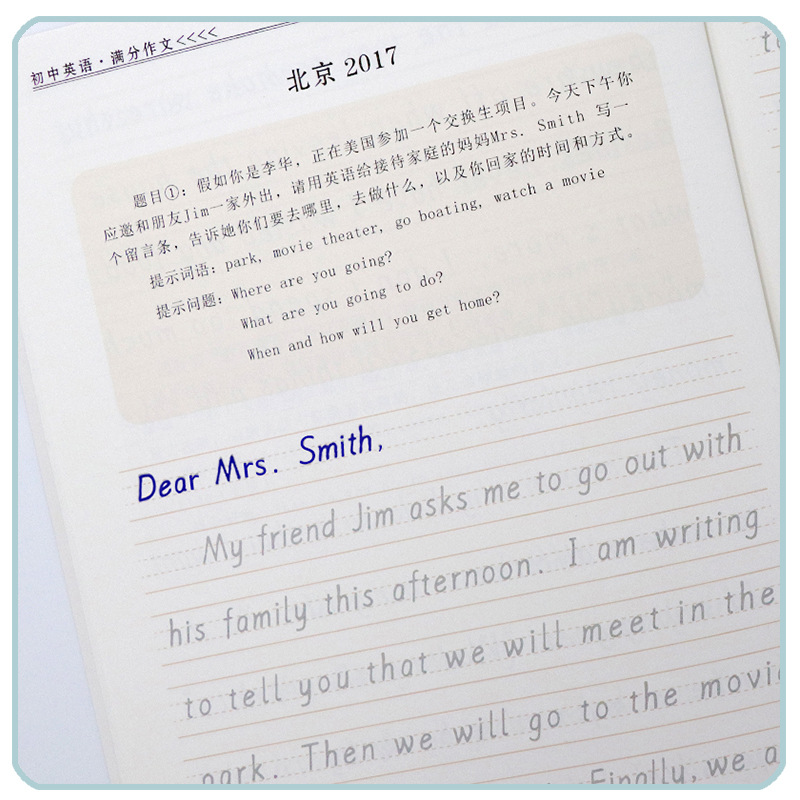 初中英语·满分作文<<<<
北京 2017
题目①：假如你是李华，正在美国参加一个交换生项目。今天下午你
应邀和朋友Jim一家外出，请用英语给接待家庭的妈妈Mrs. Smith 写一
个留言条，告诉她你们要去哪里，去做什么，以及你回家的时间和方式。
提示词语：park, movie theater, go boating, watch a movie
提示问题：Where are you going?
What are you going to do?
When and how will you get home?
Dear Mrs. Smith,
My friend Jim asks me to go out with
his family this afternoon. I am writing
to tell you that we will meet in the
park. Then we will go to the movi
Finally, we a